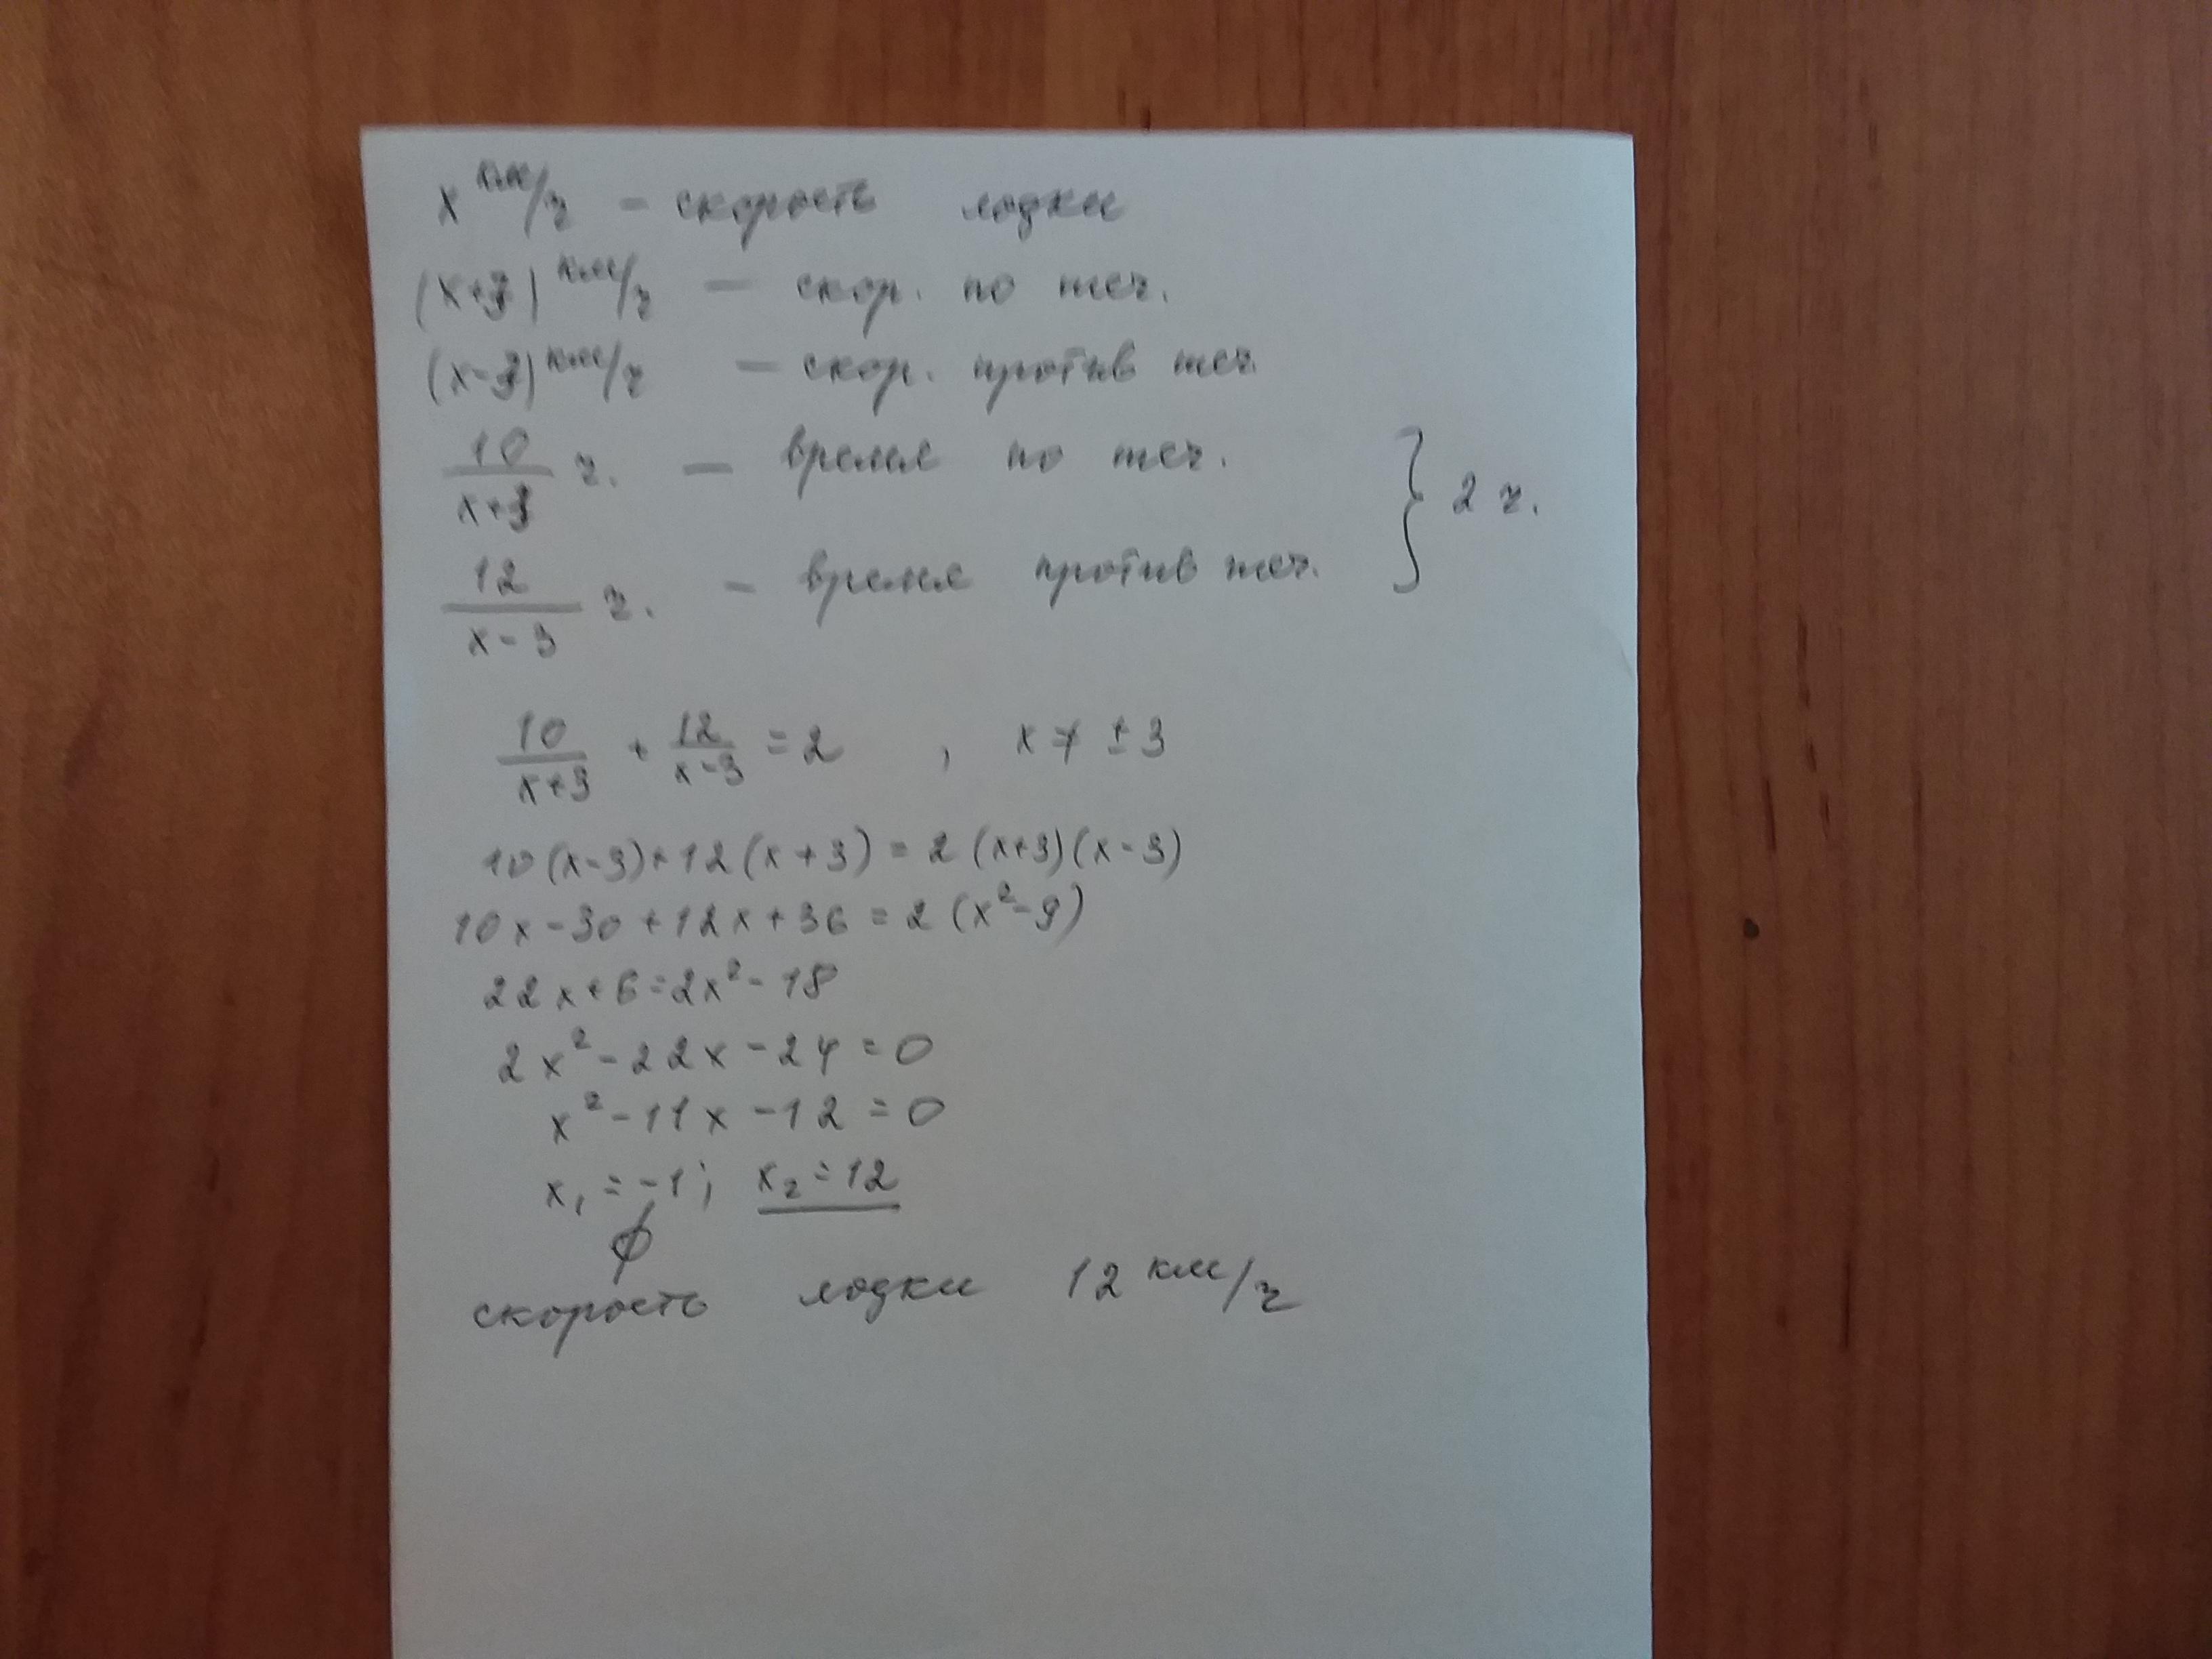 x км/ч – скорость лодки
(x+3) км/ч – скор. по теч.
(x-3) км/ч – скор. против теч.
10/(x+3) ч. – время по теч.
12/(x-3) ч. – время против теч. } 2 ч.
10/(x+3) + 12/(x-3) = 2 , x ≠ ± 3
10(x-3)+12(x+3) = 2(x+3)(x-3)
10x-30+12x+36 = 2(x²-9)
22x+6=2x²-18
2x²-22x-24=0
x²-11x-12=0
x₁=-1; x₂=12
∅
скорость лодки 12 км/ч